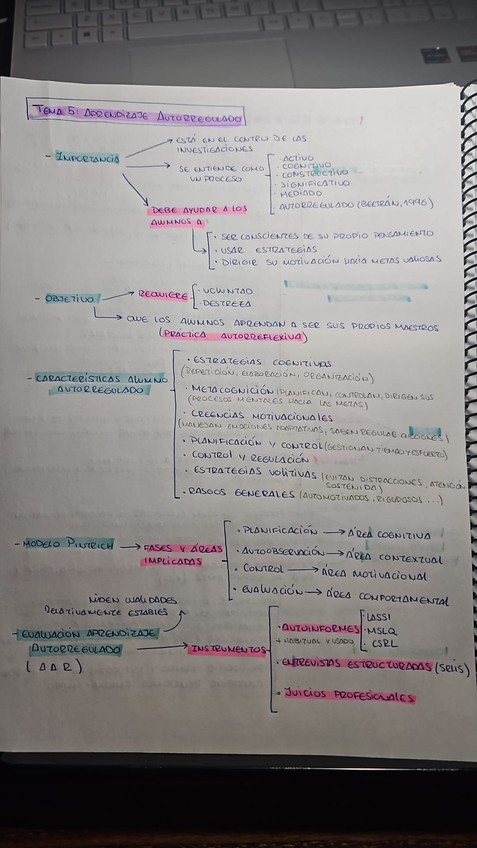 TEMA 5: APRENDIZAJE AUTORREGULADO
- IMPORTANCIA
ESTÁ EN EL CENTRO DE LAS
INVESTIGACIONES
SE ENTIENDE COMO
UN PROCESO
· ACTIVO
· COGNITIVO
· CONSTRUCTIVO
· SIGNIFICATIVO
· MEDIADO
· AUTORREGULADO (BELTRÁN, 1996)
DEBE AYUDAR A LOS
ALUMNOS A:
· SER CONSCIENTES DE SU PROPIO PENSAMIENTO
· USAR ESTRATEGIAS
· DIRIGIR SU MOTIVACIÓN HACIA METAS VALIOSAS
- OBJETIVO
REQUIERE
· VOLUNTAD
· DESTREZA
QUE LOS ALUMNOS APRENDAN A SER SUS PROPIOS MAESTROS
(PRÁCTICA AUTORREFLEXIVA)
- CARACTERÍSTICAS ALUMNO
AUTORREGULADO
· ESTRATEGIAS COGNITIVAS
(REPETICIÓN, ELABORACIÓN, ORGANIZACIÓN)
· METACOGNICIÓN (PLANIFICAN, CONTROLAN, DIRIGEN SUS
PROCESOS MENTALES HACIA LAS METAS)
· CREENCIAS MOTIVACIONALES
(MANEJAN EMOCIONES ADAPTATIVAS, SABEN REGULAR EMOCIONES)
· PLANIFICACIÓN Y CONTROL (GESTIONAN TIEMPO Y ESFUERZO)
· CONTROL Y REGULACIÓN
· ESTRATEGIAS VOLITIVAS (EVITAN DISTRACCIONES, ATENCIÓN
SOSTENIDA)
· RASGOS GENERALES (AUTOMOTIVADOS, RIGUROSOS ...)
- MODELO PINTRICH
FASES Y ÁREAS
IMPLICADAS
· PLANIFICACIÓN → ÁREA COGNITIVA
· AUTOOBSERVACIÓN → ÁREA CONTEXTUAL
· CONTROL → ÁREA MOTIVACIONAL
· EVALUACIÓN → ÁREA COMPORTAMENTAL
MIDEN CUALIDADES
RELATIVAMENTE ESTABLES
- EVALUACIÓN APRENDIZAJE
AUTORREGULADO
(AAR)
INSTRUMENTOS
· AUTOINFORMES
+ HABITUAL Y USADO
· LASSI
· MSLQ
· CSRL
· ENTREVISTAS ESTRUCTURADAS (SRLIS)
· JUICIOS PROFESIONALES